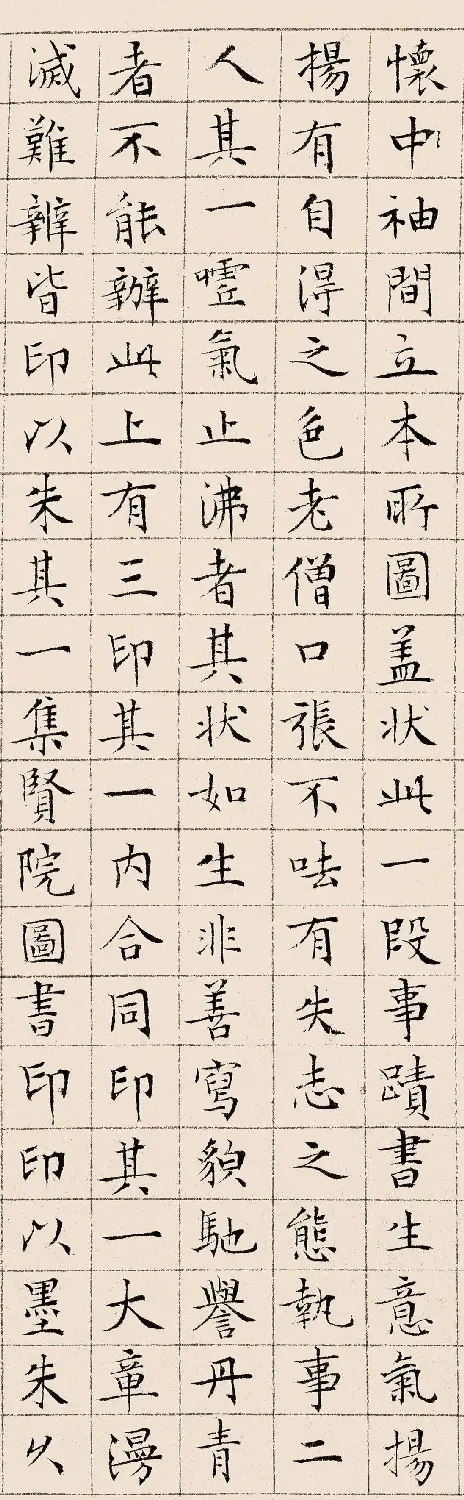 懷中袖間立本所圖盖状此一段事蹟書生意氣揚
揚有自得之色老僧口張不呿有失志之態執事二
人其一嘘氣止沸者其状如生非善寫貌馳譽丹青
者不能辦此上有三印其一内合同印其一大章漫
滅難辨皆印以朱其一集賢院圖書印印以墨朱久